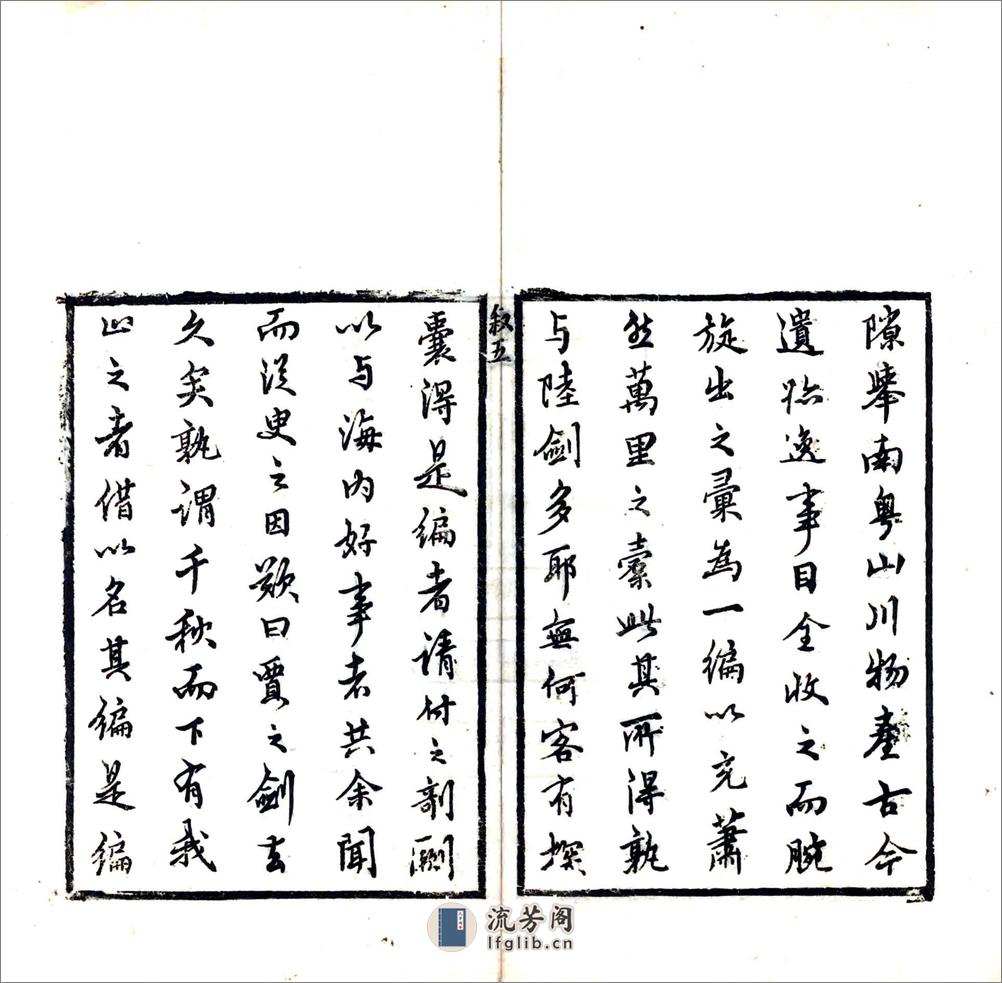 隙舉南粵山川物產古今
遺跡逸事目全收之而腕
旋出之彙為一編以充蕭
然萬里之橐此其所得孰
与陸劍多耶無何客有探
叙五
囊得是編者請付之剞劂
以与海內好事者共余聞
而從臾之因歎曰賈之劍去
久矣孰謂千秋而下有我
之者借以名其編是編
流芳阁
lfglib.cn